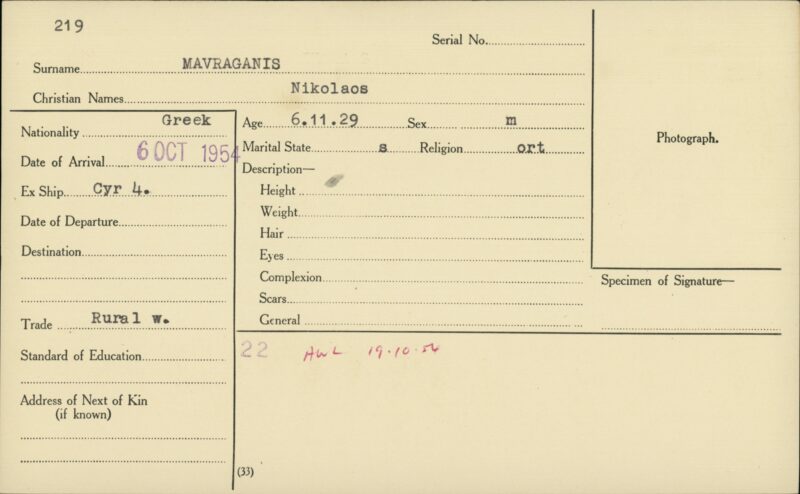 219
Serial No.
Surname MAVRAGANIS
Christian Names Nikolaos
Nationality Greek
Date of Arrival 6 OCT 1954
Ex Ship Cyr 4.
Date of Departure
Destination
Trade Rural w.
Standard of Education
Address of Next of Kin
(if known)
Age 6.11.29 Sex m
Marital State s Religion ort
Description—
Height
Weight
Hair
Eyes
Complexion
Scars
General
22 AWL 19.10.54
(33)
Photograph.
Specimen of Signature—